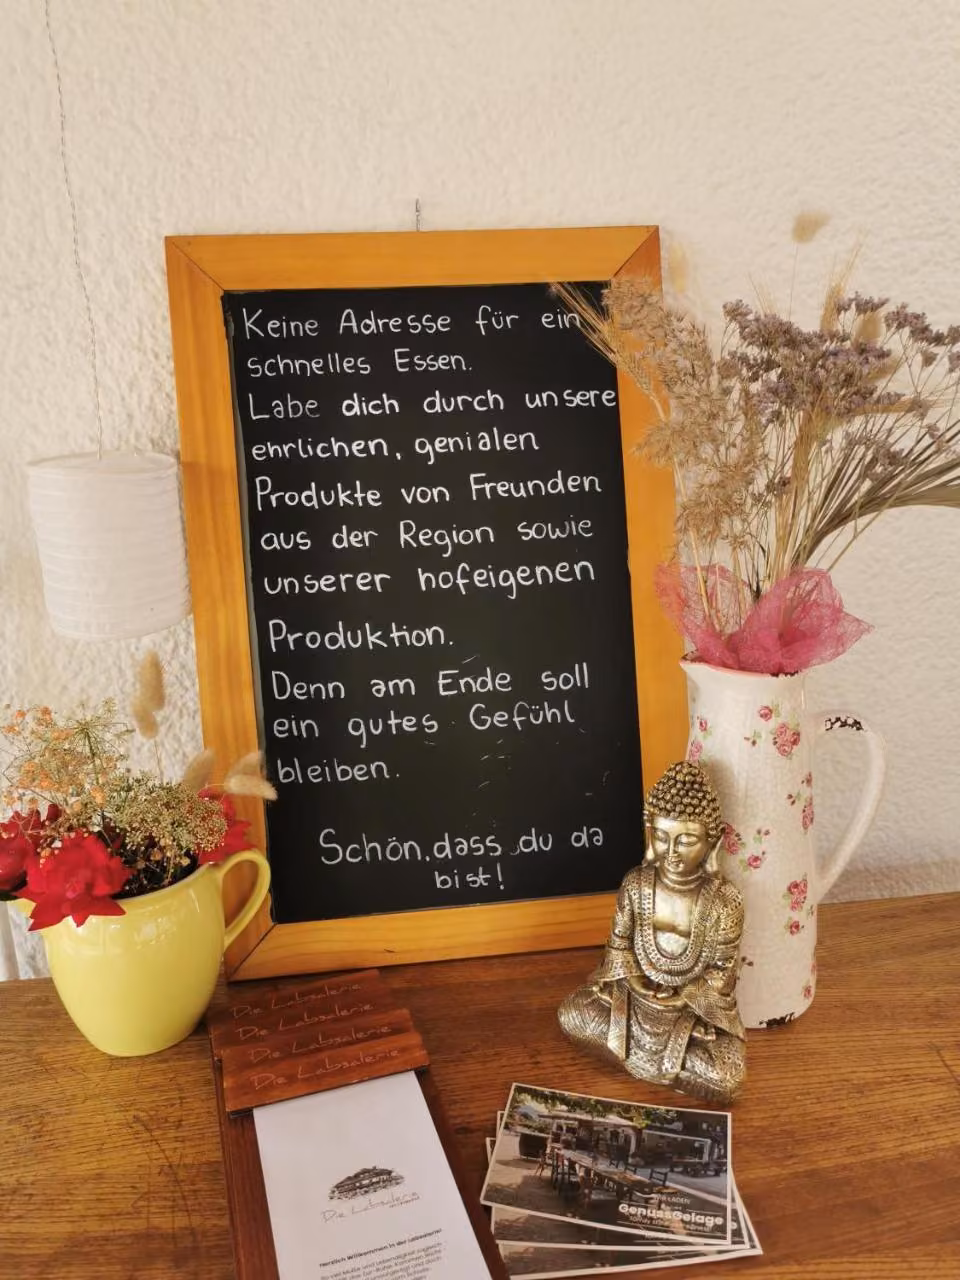 Keine Adresse für ein
schnelles Essen.
Labe dich durch unsere
ehrlichen, genialen
Produkte von Freunden
aus der Region sowie
unserer hofeigenen
Produktion.
Denn am Ende soll
ein gutes Gefühl
bleiben.
Schön, dass du da
bist!
Die Labsalerie
Die Labsalerie
Die Labsalerie
Die Labsalerie
Die Labsalerie
Herzlich Willkommen in der Labsalerie!
WIR LADEN
GenussGelage